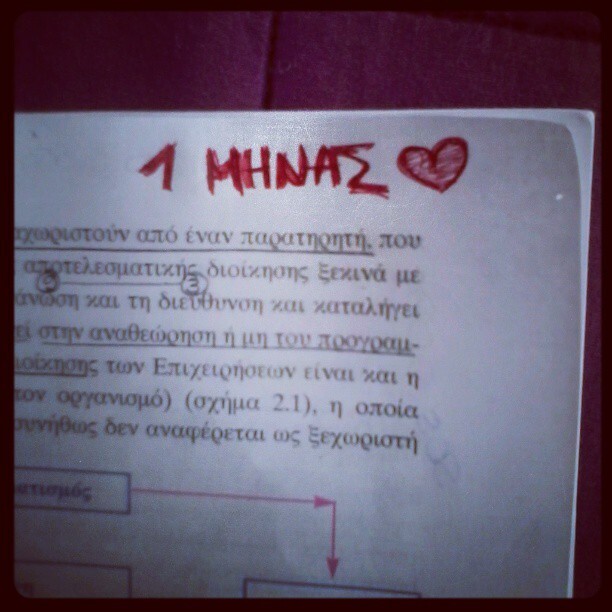 1 ΜΗΝΑΣ
αχωριστούν από έναν παρατηρητή, που
αποτελεσματικής διοίκησης ξεκινά με
2 3
άνωση και τη διεύθυνση και καταλήγει
εί στην αναθεώρηση ή μη του προγραμ-
ιοίκησης των Επιχειρήσεων είναι και η
τον οργανισμό) (σχήμα 2.1), η οποία
συνήθως δεν αναφέρεται ως ξεχωριστή
ατισμός